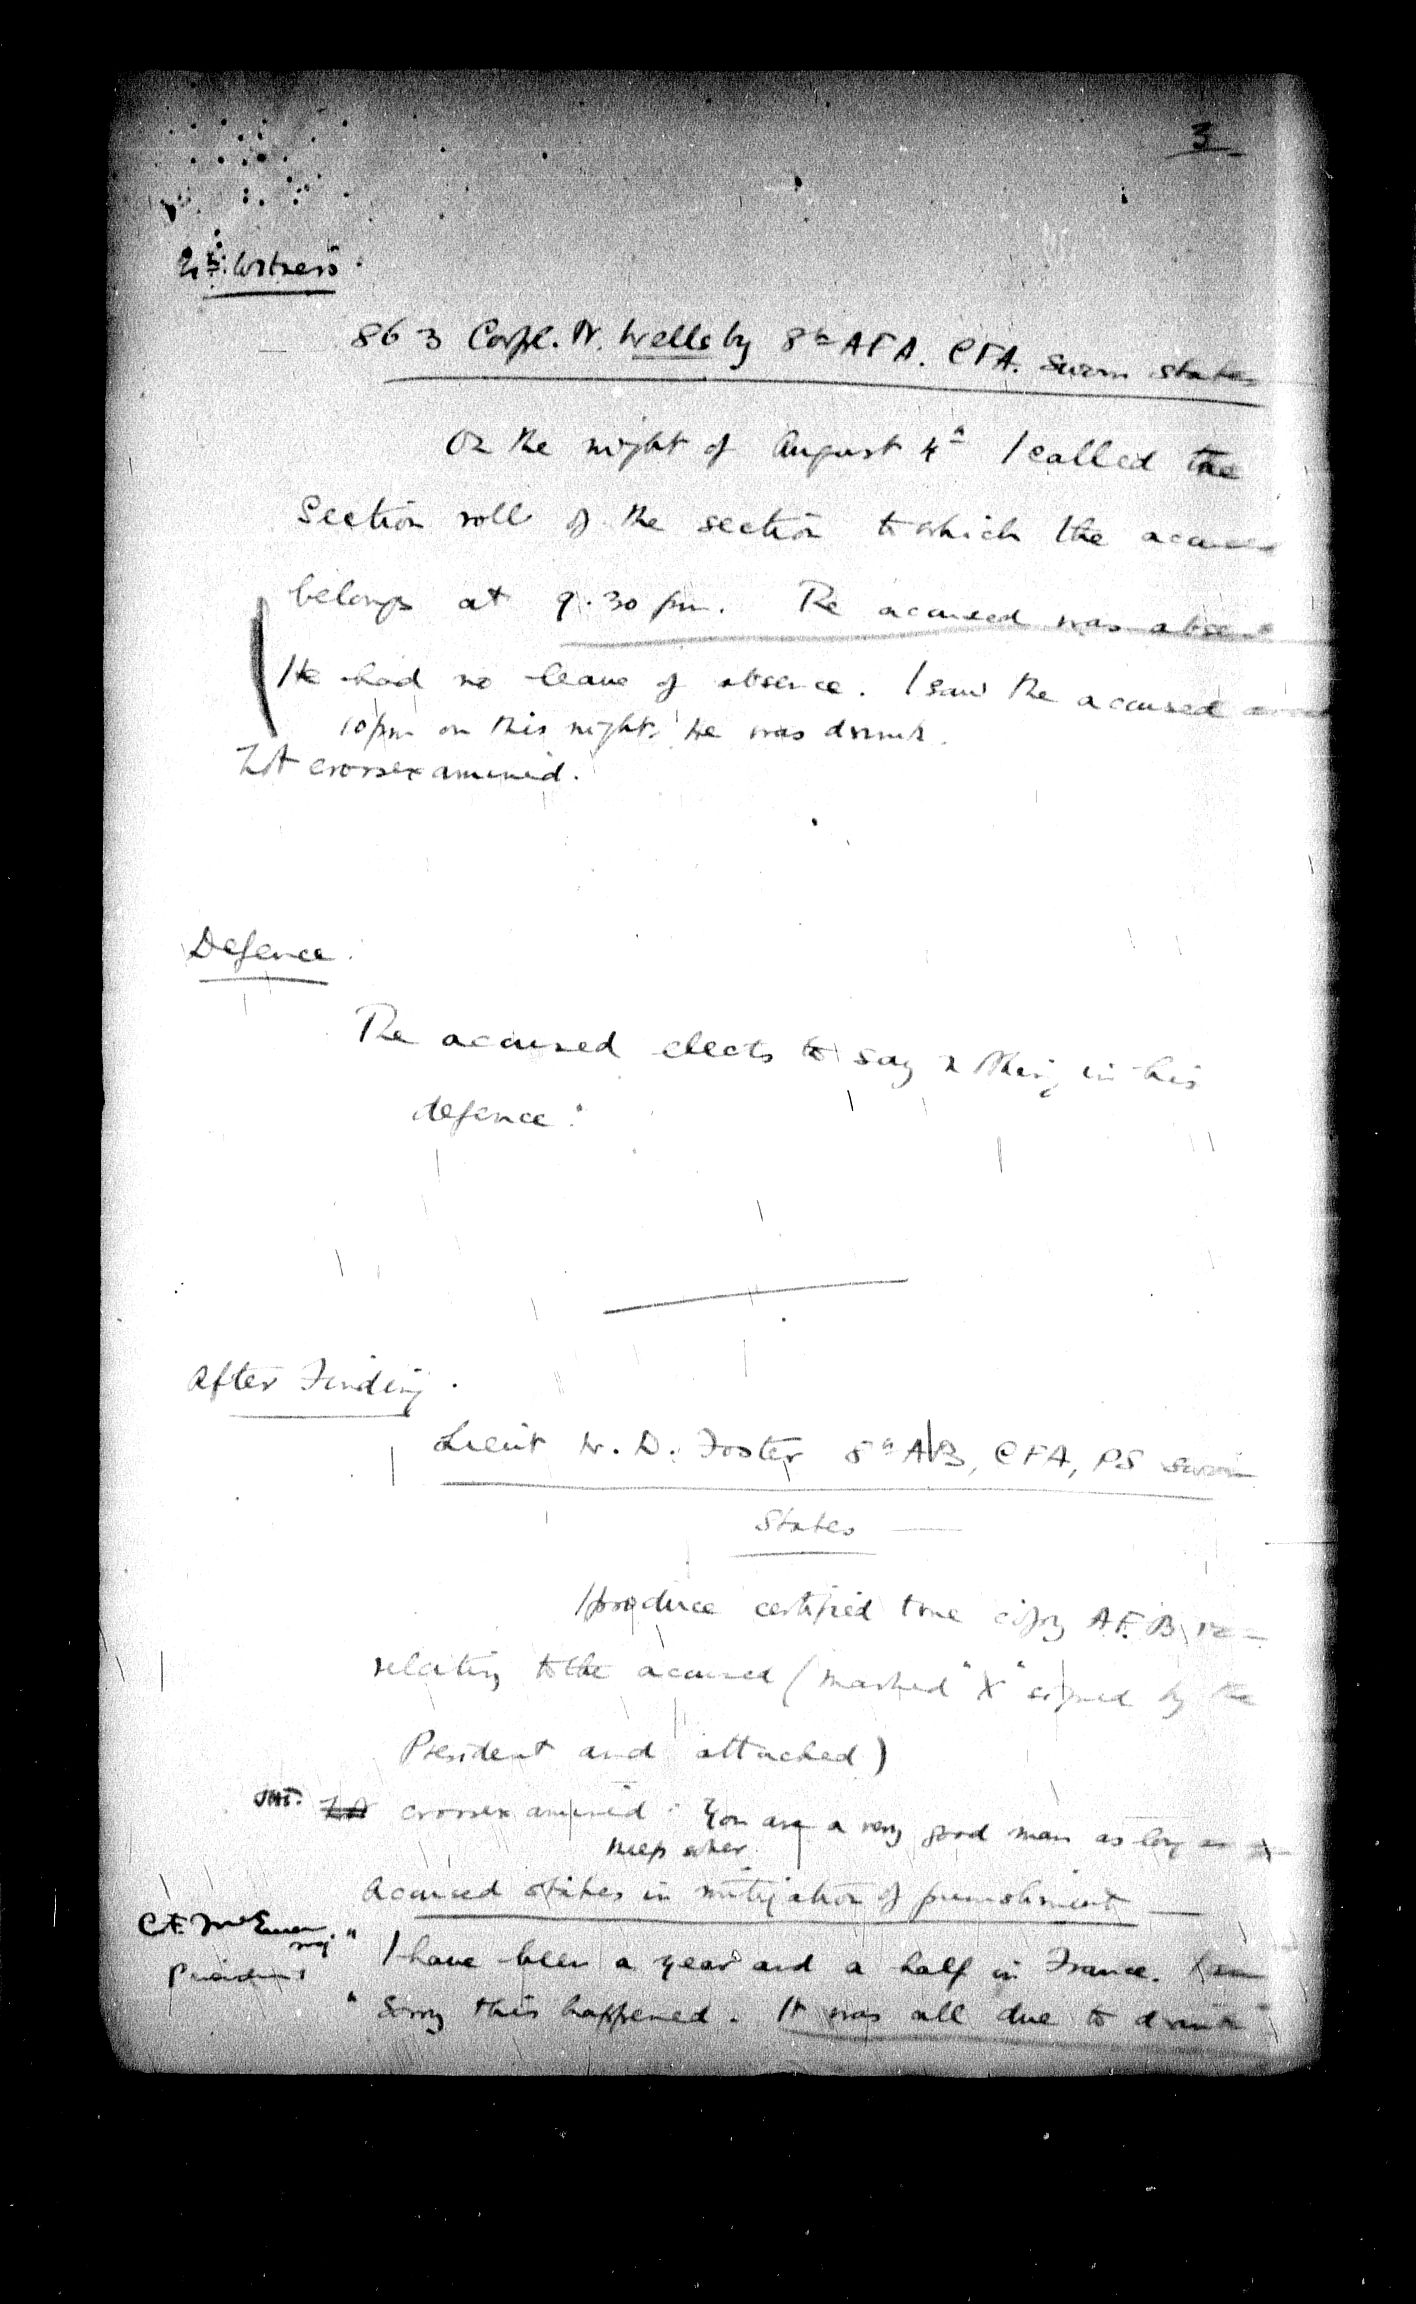 3
4th Witness.
863 Corpl. W. Welleby 8th AFA. CFA. sworn states
On the night of August 4th I called the
Section roll of the section to which the accused
belongs at 9.30 pm. The accused was absent
He had no leave of absence. I saw the accused
10 pm on this night. He was drunk.
Not crossexamined.
Defence.
The accused elects to say nothing in his
defence.
After Finding.
Lieut W. D. Foster 8th AB, CFA, PS sworn
States
I produce certified true copy A.F.B 122
relating to the accused (marked "X" signed by the
President and attached)
Not crossexamined. You are a very good man as long as
keep sober
Accused states in mitigation of punishment
C.F. McEwen
maj.
President
" I have been a year and a half in France. I am
" Sorry this happened. It was all due to drink"